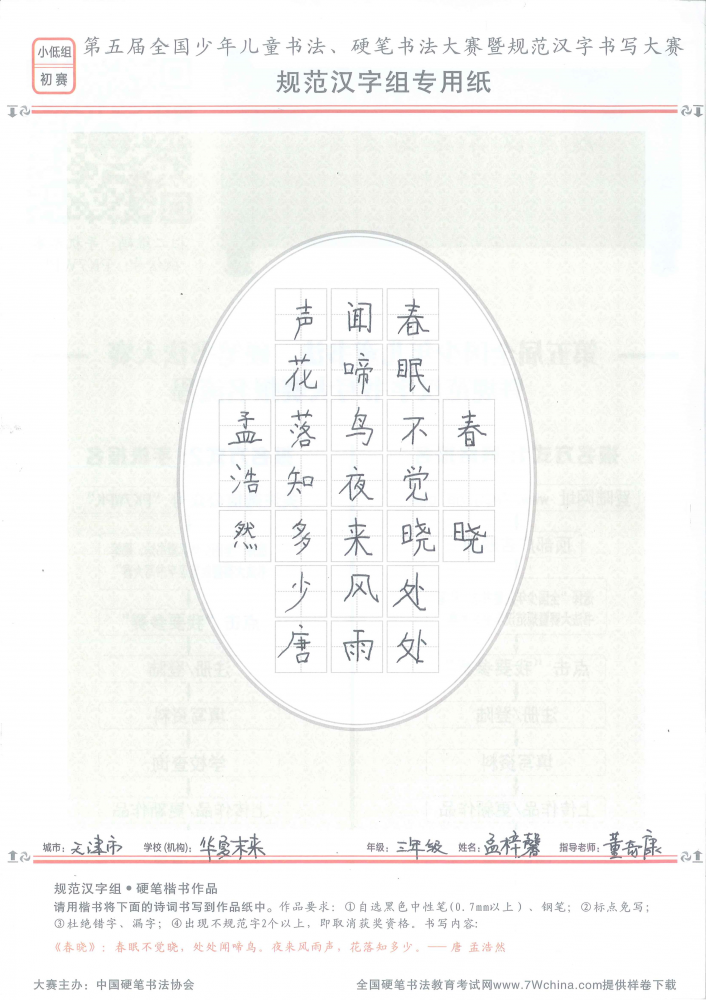 小低组
初赛
第五届全国少年儿童书法、硬笔书法大赛暨规范汉字书写大赛
规范汉字组专用纸
春晓
春眠不觉晓处处
闻啼鸟夜来风雨
声花落知多少唐
孟浩然
城市：天津市 学校(机构)：华夏未来 年级：三年级 姓名：孟梓馨 指导老师：董奇康
规范汉字组●硬笔楷书作品
请用楷书将下面的诗词书写到作品纸中。作品要求：①自选黑色中性笔(0.7mm以上)、钢笔；②标点免写；
③杜绝错字、漏字；④出现不规范字2个以上，即取消获奖资格。书写内容：
《春晓》：春眠不觉晓，处处闻啼鸟。夜来风雨声，花落知多少。——唐 孟浩然
大赛主办：中国硬笔书法协会
全国硬笔书法教育考试网www.7Wchina.com提供样卷下载